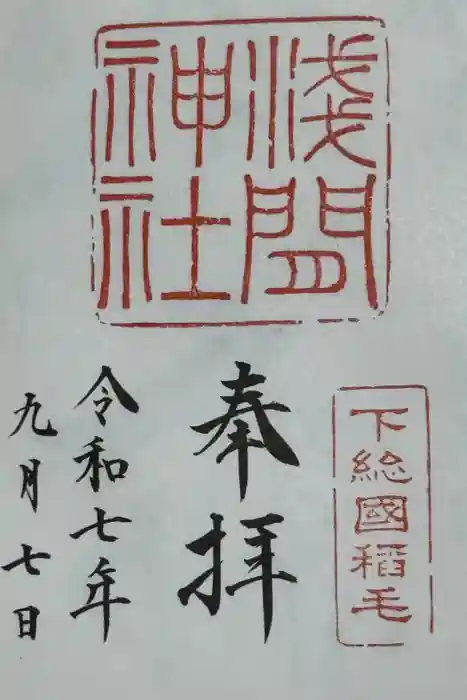 浅間
神社
下総國稲毛
奉拝
令和七年
九月七日